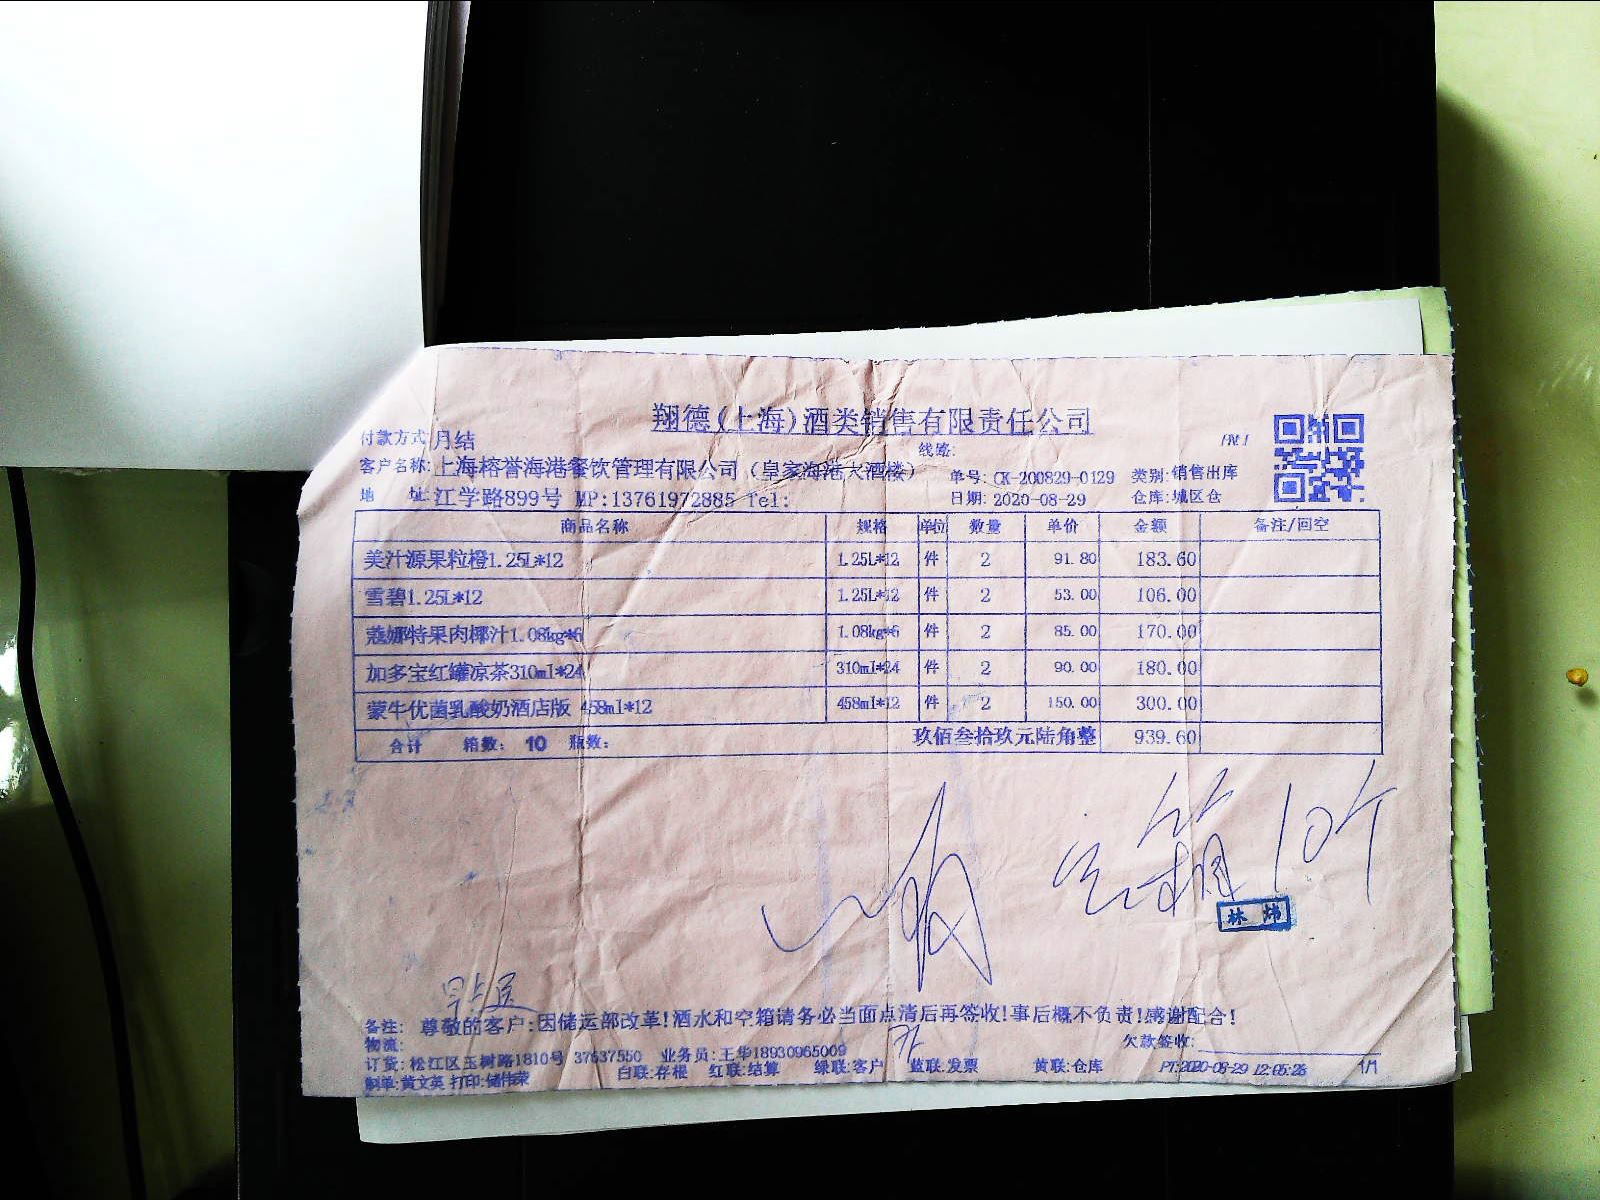 翔德(上海)酒类销售有限责任公司
付款方式:月结 线路:
客户名称:上海榕誉海港餐饮管理有限公司(皇家海港大酒楼) 单号:CK-200829-0129 类别:销售出库
地 址:江学路899号 MP:13761972885 Tel: 日期:2020-08-29 仓库:城区仓
商品名称 规格 单位 数量 单价 金额 备注/回空
美汁源果粒橙1.25L*12 1.25L*12 件 2 91.80 183.60
雪碧1.25L*12 1.25L*12 件 2 53.00 106.00
蔻娜特果肉椰汁1.08kg*6 1.08kg*6 件 2 85.00 170.00
加多宝红罐凉茶310ml*24 310ml*24 件 2 90.00 180.00
蒙牛优菌乳酸奶酒店版 458ml*12 458ml*12 件 2 150.00 300.00
合计 箱数: 10 瓶数: 玖佰叁拾玖元陆角整 939.60
空箱10个
林 炜
早上送
备注: 尊敬的客户:因储运部改革!酒水和空箱请务必当面点清后再签收!事后概不负责!感谢配合!
物流: 欠款签收:
订货:松江区玉树路1810号 37637550 业务员:王华18930965009
制单:黄文英 打印:储伟荣 白联:存根 红联:结算 绿联:客户 蓝联:发票 黄联:仓库 PT:2020-08-29 12:05:26 1/1